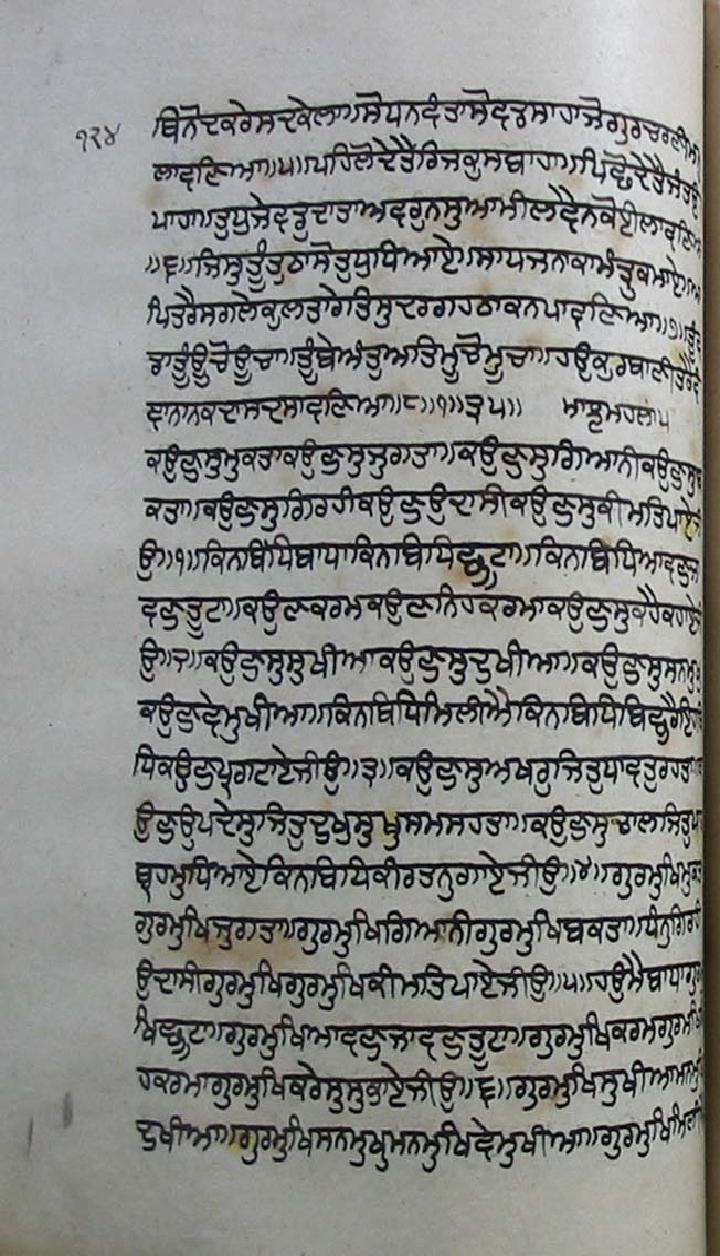 ਬਿਨੋਦਕਰੇਸਦਕੇਲਾ॥ਸੋਧਨਵੰਤਾਸੋਵਡਸਾਹਾਜੋਗੁਰਚਰਣੀਮ
੧੨੪
ਲਾਵਣਿਆ॥੫॥ਪਹਿਲੋਦੇਤੈਰਿਜਕੁਸਬਾਹਾ॥ਪਿਛੋਦੇਤੈਜੰਤੁਉ
ਪਾਹਾ॥ਤੁਧੁਜੇਵਡੁਦਾਤਾਅਵਰੁਨਸੁਆਮੀਲਵੈਨਕੋਈਲਾਵਣਿਆ
॥੬॥ਜਿਸੁਤੂੰਤੁਠਾਸੋਤੁਧੁਧਿਆਏ॥ਸਾਧਜਨਾਕਾਮੰਤ੍ਰੁਕਮਾਏ॥ਆ
ਪਿਤਰੈਸਗਲੇਕੁਲਤਾਰੇਤਿਸੁਦਰਗਹਠਾਕਨਪਾਵਣਿਆ॥੭॥ਤੂੰਵ
ਡਾਤੂੰਊਚੋਊਚਾ॥ਤੂੰਬੇਅੰਤੁਅਤਿਮੂਚੋਮੂਚਾ॥ਹਉਕੁਰਬਾਣੀਤੇਰੈਵੰ
ਞਾਨਾਨਕਦਾਸਦਸਾਵਣਿਆ॥੮॥੧॥੩੫॥ ਮਾਝਮਹਲਾ੫
ਕਉਣੁਸੁਮੁਕਤਾਕਉਣੁਸੁਜੁਗਤਾ॥ਕਉਣੁਸੁਗਿਆਨੀਕਉਣੁਸੁਬ
ਕਤਾ॥ਕਉਣੁਸੁਗਿਰਹੀਕਉਣੁਉਦਾਸੀਕਉਣੁਸੁਕੀਮਤਿਪਾਏਜੀ
ਉ॥੧॥ਕਿਨਬਿਧਿਬਾਧਾਕਿਨਬਿਧਿਛੂਟਾ॥ਕਿਨਬਿਧਿਆਵਣੁਜਾ
ਵਣੁਤੂਟਾ॥ਕਉਣਕਰਮਕਉਣਨਿਹਕਰਮਾਕਉਣੁਸੁਕਹੈਕਹਾਏਜੀ
ਉ॥੨॥ਕਉਣੁਸੁਸੁਖੀਆਕਉਣੁਸੁਦੁਖੀਆ॥ਕਉਣੁਸੁਸਨਮੁਖੁ
ਕਉਣੁਵੇਮੁਖੀਆ॥ਕਿਨਬਿਧਿਮਿਲੀਐਕਿਨਬਿਧਿਬਿਛੁਰੈਇਹ
ਧਿਕਉਣੁਪ੍ਰਗਟਾਏਜੀਉ॥੩॥ਕਉਣੁਸੁਅਖਰੁਜਿਤੁਧਾਵਤੁਰਹਤਾ
ਉਣੁਉਪਦੇਸੁਜਿਤੁਦੁਖੁਸੁਖੁਸਮਸਹਤਾ॥ਕਉਣੁਸੁਚਾਲਜਿਤੁਪਾ
ਬ੍ਰਹਮੁਧਿਆਏਕਿਨਬਿਧਿਕੀਰਤਨੁਗਾਏਜੀਉ॥੪॥ਗੁਰਮੁਖਿਮੁਕਤਾ
ਗੁਰਮੁਖਿਜੁਗਤਾ॥ਗੁਰਮੁਖਿਗਿਆਨੀਗੁਰਮੁਖਿਬਕਤਾ॥ਧੰਨੁਗਿਰਹੀ
ਉਦਾਸੀਗੁਰਮੁਖਿਗੁਰਮੁਖਿਕੀਮਤਿਪਾਏਜੀਉ॥੫॥ਹਉਮੈਬਾਧਾਗੁਰਮੁ
ਖਿਛੂਟਾ॥ਗੁਰਮੁਖਿਆਵਣੁਜਾਵਣੁਤੂਟਾ॥ਗੁਰਮੁਖਿਕਰਮਗੁਰਮੁਖਿ
ਹਕਰਮਾਗੁਰਮੁਖਿਕਰੇਸੁਸੁਭਾਏਜੀਉ॥੬॥ਗੁਰਮੁਖਿਸੁਖੀਆਮਨਮੁਖਿ
ਦੁਖੀਆ॥ਗੁਰਮੁਖਿਸਨਮੁਖੁਮਨਮੁਖਿਵੇਮੁਖੀਆ॥ਗੁਰਮੁਖਿਮਿਲੀਐ